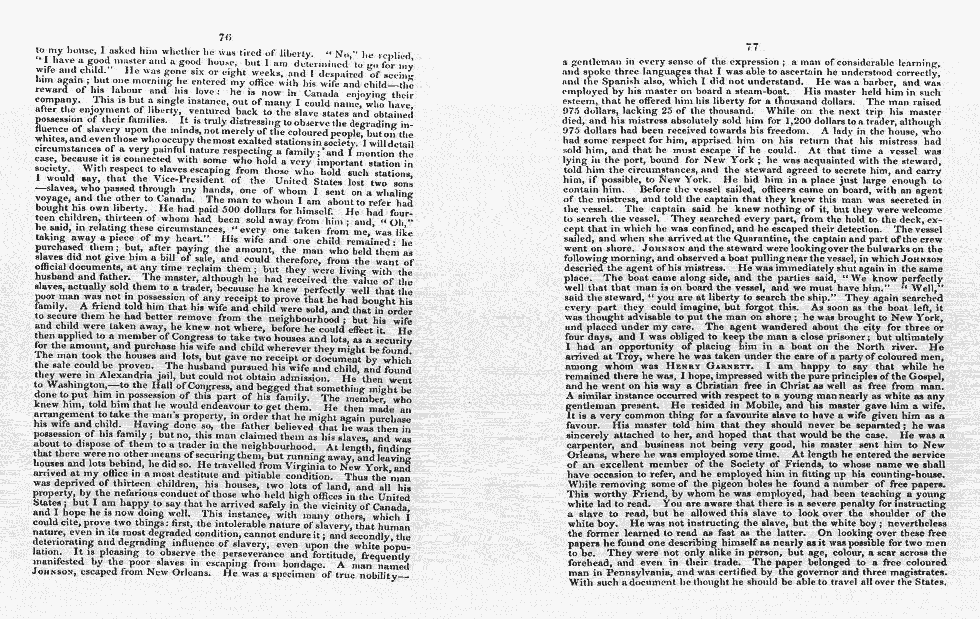 76
to my house, I asked him whether he was tired of liberty. "No," he replied,
"I have a good master and a good house, but I am determined to go for my
wife and child." He was gone six or eight weeks, and I despaired of seeing
him again; but one morning he entered my office with his wife and child—the
reward of his labour and his love: he is now in Canada enjoying their
company. This is but a single instance, out of many I could name, who have,
after the enjoyment of liberty, ventured back to the slave states and obtained
possession of their families. It is truly distressing to observe the degrading in-
fluence of slavery upon the minds, not merely of the coloured people, but on the
whites, and even those who occupy the most exalted stations in society. I will detail
circumstances of a very painful nature respecting a family; and I mention the
case, because it is connected with some who hold a very important station in
society. With respect to slaves escaping from those who hold such stations,
I would say, that the Vice-President of the United States lost two sons
—slaves, who passed through my hands, one of whom I sent on a whaling
voyage, and the other to Canada. The man to whom I am about to refer had
bought his own liberty. He had paid 500 dollars for himself. He had four-
teen children, thirteen of whom had been sold away from him; and, "Oh,"
he said, in relating these circumstances, "every one taken from me, was like
taking away a piece of my heart." His wife and one child remained: he
purchased them; but, after paying the amount, the man who held them as
slaves did not give him a bill of sale, and could therefore, from the want of
official documents, at any time reclaim them; but they were living with the
husband and father. The master, although he had received the value of the
slaves, actually sold them to a trader, because he knew perfectly well that the
poor man was not in possession of any receipt to prove that he had bought his
family. A friend told him that his wife and child were sold, and that in order
to secure them he had better remove from the neighbourhood; but his wife
and child were taken away, he knew not where, before he could effect it. He
then applied to a member of Congress to take two houses and lots, as a security
for the amount, and purchase his wife and child wherever they might be found.
The man took the houses and lots, but gave no receipt or document by which
the sale could be proven. The husband pursued his wife and child, and found
they were in Alexandria jail, but could not obtain admission. He then went
to Washington,—to the Hall of Congress, and begged that something might be
done to put him in possession of this part of his family. The member, who
knew him, told him that he would endeavour to get them. He then made an
arrangement to take the man's property, in order that he might again purchase
his wife and child. Having done so, the father believed that he was then in
possession of his family; but no, this man claimed them as his slaves, and was
about to dispose of them to a trader in the neighbourhood. At length, finding
that there were no other means of securing them, but running away, and leaving
houses and lots behind, he did so. He travelled from Virginia to New York, and
arrived at my office in a most destitute and pitiable condition. Thus the man
was deprived of thirteen children, his houses, two lots of land, and all his
property, by the nefarious conduct of those who held high offices in the United
States; but I am happy to say that he arrived safely in the vicinity of Canada,
and I hope he is now doing well. This instance, with many others, which I
could cite, prove two things: first, the intolerable nature of slavery, that human
nature, even in its most degraded condition, cannot endure it; and secondly, the
deteriorating and degrading influence of slavery, even upon the white popu-
lation. It is pleasing to observe the perseverance and fortitude, frequently
manifested by the poor slaves in escaping from bondage. A man named
JOHNSON, escaped from New Orleans. He was a specimen of true nobility—
77
a gentleman in every sense of the expression; a man of considerable learning,
and spoke three languages that I was able to ascertain he understood correctly,
and the Spanish also, which I did not understand. He was a barber, and was
employed by his master on board a steam-boat. His master held him in such
esteem, that he offered him his liberty for a thousand dollars. The man raised
975 dollars, lacking 25 of the thousand. While on the next trip his master
died, and his mistress absolutely sold him for 1,200 dollars to a trader, although
975 dollars had been received towards his freedom. A lady in the house, who
had some respect for him, apprised him on his return that his mistress had
sold him, and that he must escape if he could. At that time a vessel was
lying in the port, bound for New York; he was acquainted with the steward,
told him the circumstances, and the steward agreed to secrete him, and carry
him, if possible, to New York. He hid him in a place just large enough to
contain him. Before the vessel sailed, officers came on board, with an agent
of the mistress, and told the captain that they knew this man was secreted in
the vessel. The captain said he knew nothing of it, but they were welcome
to search the vessel. They searched every part, from the hold to the deck, ex-
cept that in which he was confined, and he escaped their detection. The vessel
sailed, and when she arrived at the Quarantine, the captain and part of the crew
went on shore. JOHNSON and the steward were looking over the bulwarks on the
following morning, and observed a boat pulling near the vessel, in which JOHNSON
descried the agent of his mistress. He was immediately shut again in the same
place. The boat came along side, and the parties said, "We know perfectly
well that that man is on board the vessel, and we must have him." "Well,"
said the steward, "you are at liberty to search the ship." They again searched
every part they could imagine, but forgot this. As soon as the boat left, it
was thought advisable to put the man on shore; he was brought to New York,
and placed under my care. The agent wandered about the city for three or
four days, and I was obliged to keep the man a close prisoner; but ultimately
I had an opportunity of placing him in a boat on the North river. He
arrived at Troy, where he was taken under the care of a party of coloured men,
among whom was HENRY GARNETT. I am happy to say that while he
remained there he was, I hope, impressed with the pure principles of the Gospel,
and he went on his way a Christian free in Christ as well as free from man.
A similar instance occurred with respect to a young man nearly as white as any
gentleman present. He resided in Mobile, and his master gave him a wife.
It is a very common thing for a favorite slave to have a wife given him as a
favour. His master told him that they should never be separated; he was
sincerely attached to her, and hoped that that would be the case. He was a
carpenter, and business not being very good, his master sent him to New
Orleans, where he was employed some time. At length he entered the service
of an excellent member of the Society of Friends, to whose name we shall
have occasion to refer, and he employed him in fitting up his counting-house.
While removing some of the pigeon holes he found a number of free papers.
This worthy Friend, by whom he was employed, had been teaching a young
white lad to read. You are aware that there is a severe penalty for instructing
a slave to read, but he allowed this slave to look over the shoulder of the
white boy. He was not instructing the slave, but the white boy; nevertheless
the former learned to read as fast as the latter. On looking over these free
papers he found one describing himself as nearly as it was possible for two men
to be. They were not only alike in person, but age, colour, a scar across the
forehead, and even in their trade. The paper belonged to a free coloured
man in Pennsylvania, and was certified by the governor and three magistrates.
With such a document he thought he should be able to travel all over the States.